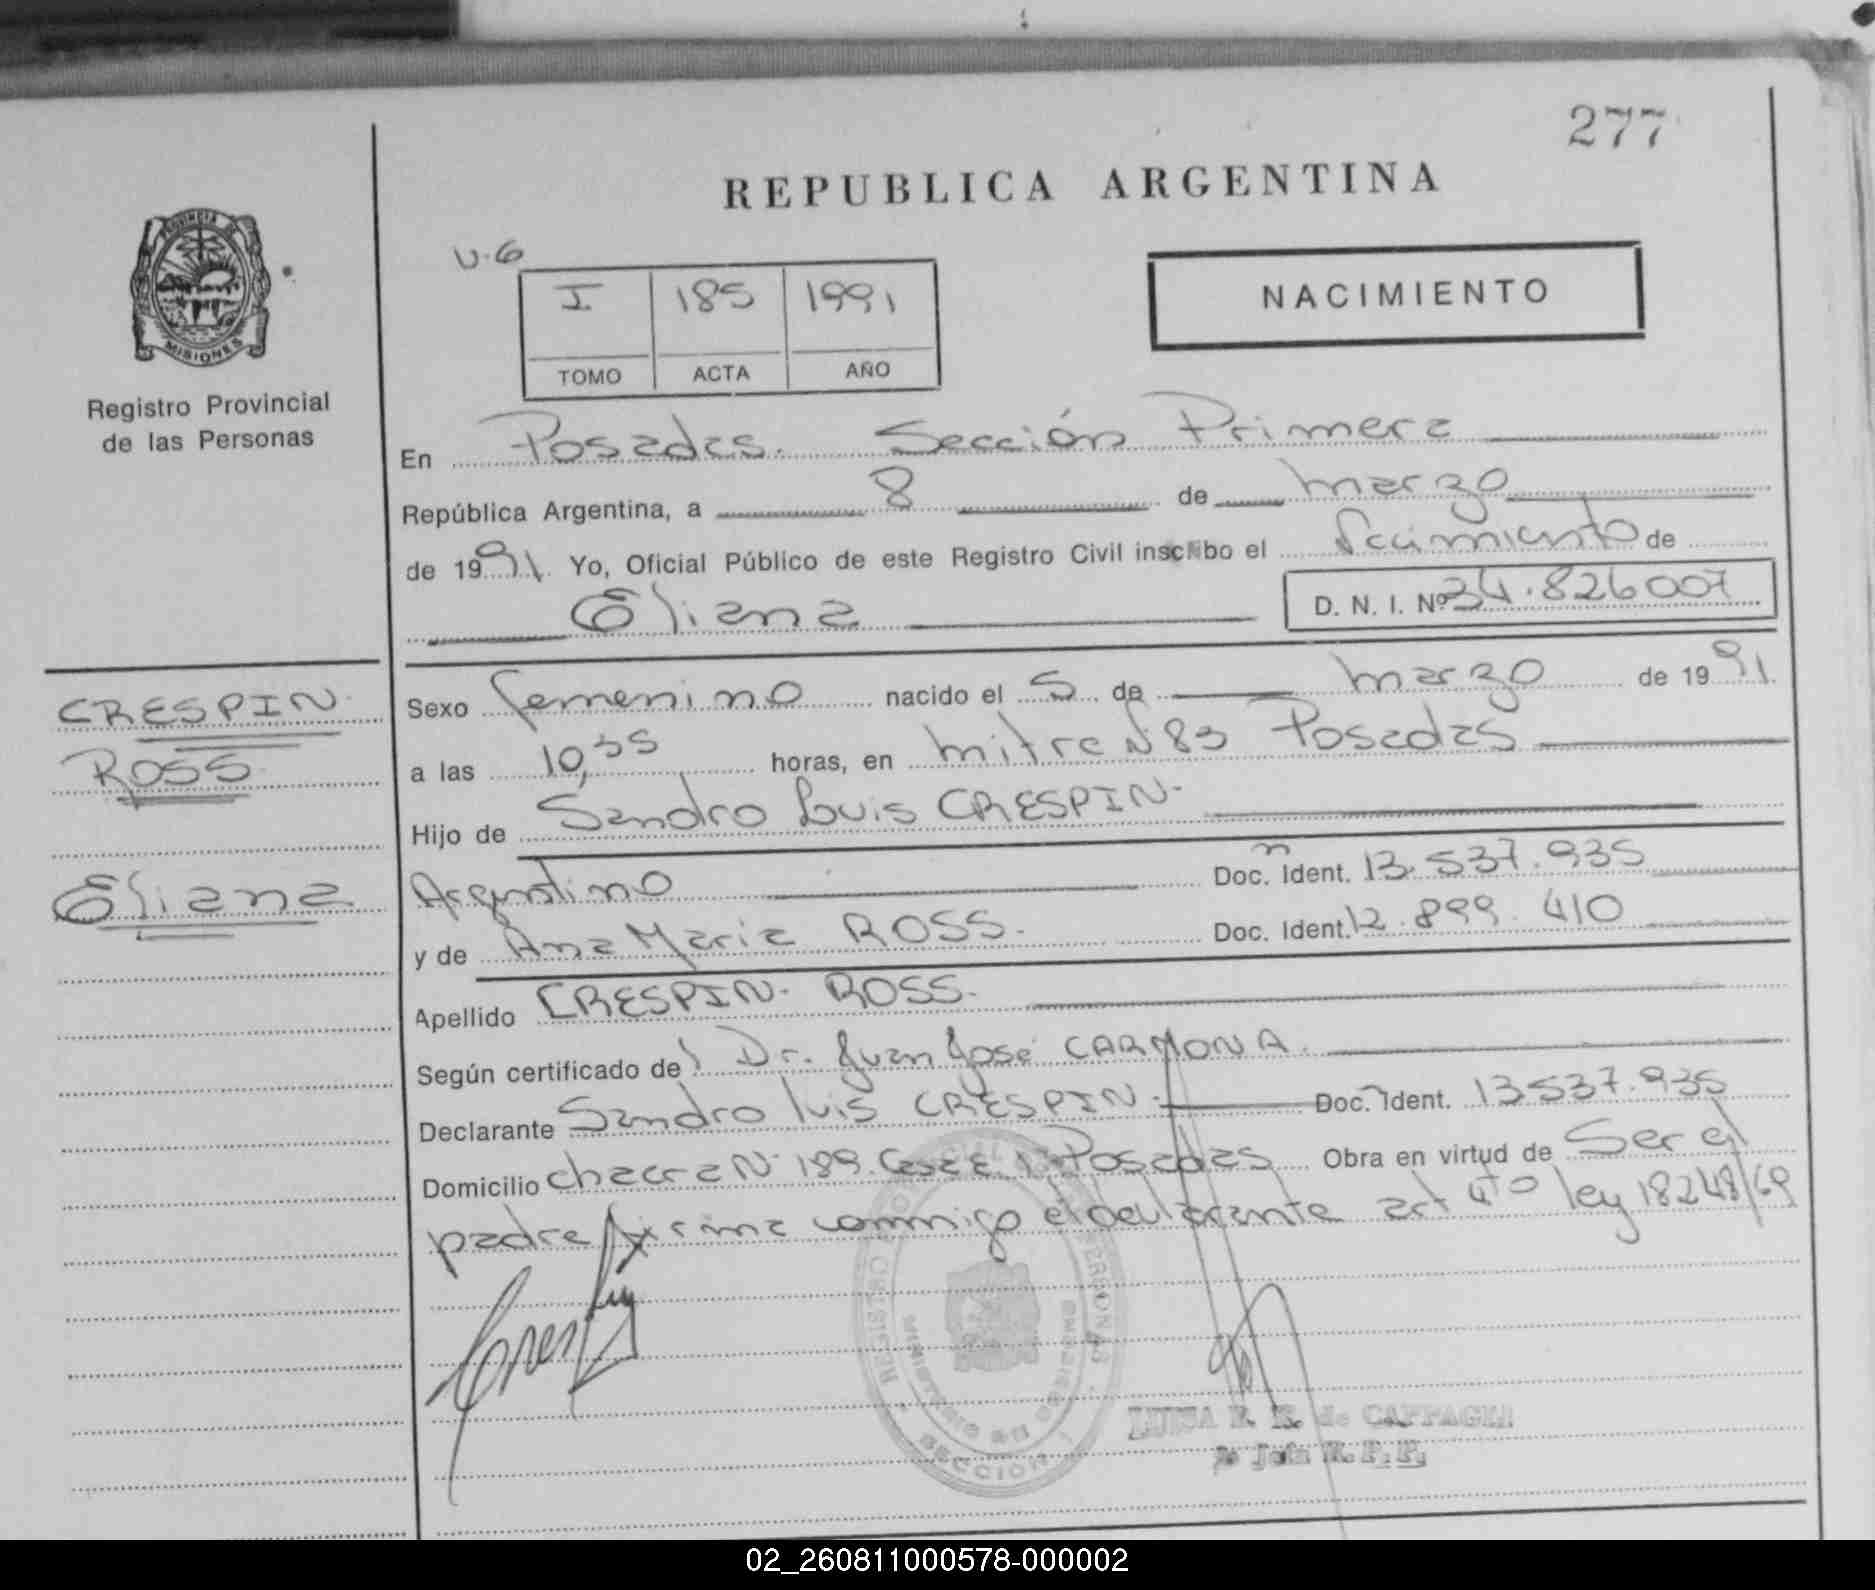 277
REPUBLICA ARGENTINA
PROVINCIA DE
MISIONES
Registro Provincial
de las Personas
U-6
I 185 1991
TOMO ACTA AÑO
NACIMIENTO
En Posadas. Sección Primera
República Argentina, a 8 de marzo
de 1991. Yo, Oficial Público de este Registro Civil inscribo el Nacimiento de
Eliana
D. N. I. Nº 34.826007
CRESPIN
ROSS
Eliana
Sexo femenino nacido el 5 de marzo de 1991
a las 10,35 horas, en mitre N 83 Posadas
Hijo de Sandro Luis CRESPIN-
Argentino Doc. Ident. 13.537.935
y de Ana Maria ROSS. Doc. Ident. 12.899.410
Apellido CRESPIN- ROSS.
Según certificado del Dr. Juan José CARMONA.
Declarante Sandro luis CRESPIN- Doc. Ident. 13537.935
Domicilio chacra N 189. Casa 1 Posadas Obra en virtud de Ser el
padre firma conmigo el declarante art 4to ley 18248/69
SECCION 1
de CAPPAGLI
R. P. P.
02_260811000578-000002